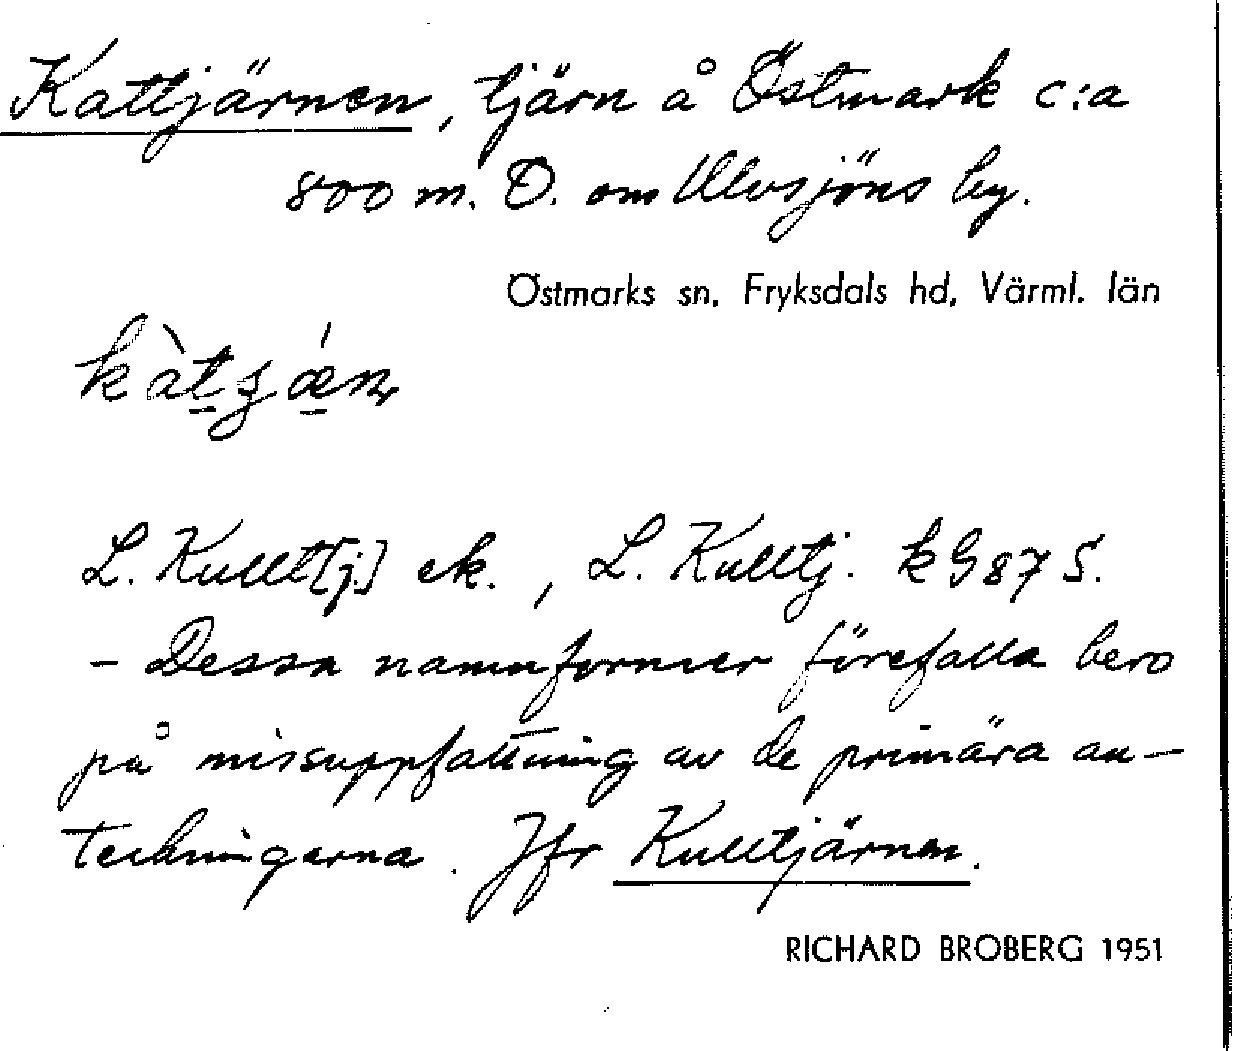 Kattjärnen, tjärn å Östmark c:a
800 m. Ö. om Ulvsjöns by.
Östmarks sn, Fryksdals hd, Värml. län
L. Kulltt[j.] ek., L. Kulltj. k G 87 S.
- Dessa namnformer förefalla bero
på missuppfattning av de primära an-
teckningarna. Jfr Kulltjärnen.
RICHARD BROBERG 1951